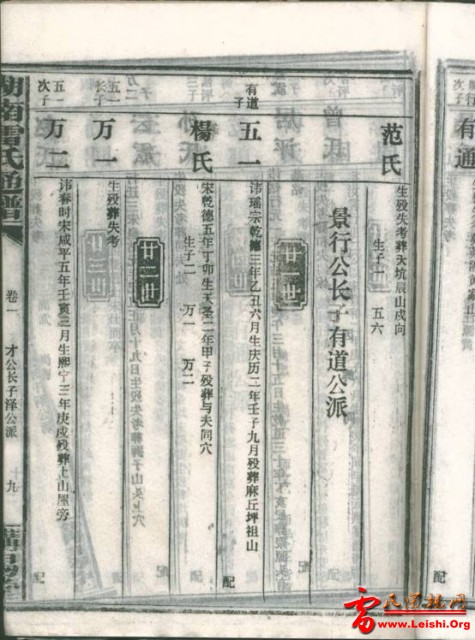 有通
范氏
生殁失考葬天坑辰山戌向
生子一 五六
景行公长子有道公派
廿一世
有道子
五一
讳瑶宗乾德三年乙丑六月生庆历二年壬子九月殁葬麻丘坪祖山
配
楊氏
宋乾德五年丁卯生天圣二年甲子殁葬与夫同穴
生子二 万一 万二
廿二世
五一长子
万一
生殁葬失考
配
五一次子
万二
讳春时宋咸平五年壬寅三月生熙宁三年庚戌殁葬土山屋旁
配
湖南雷氏通譜
卷一
才公长子泽公派
十九
雷氏通譜网
www.Leishi.Org